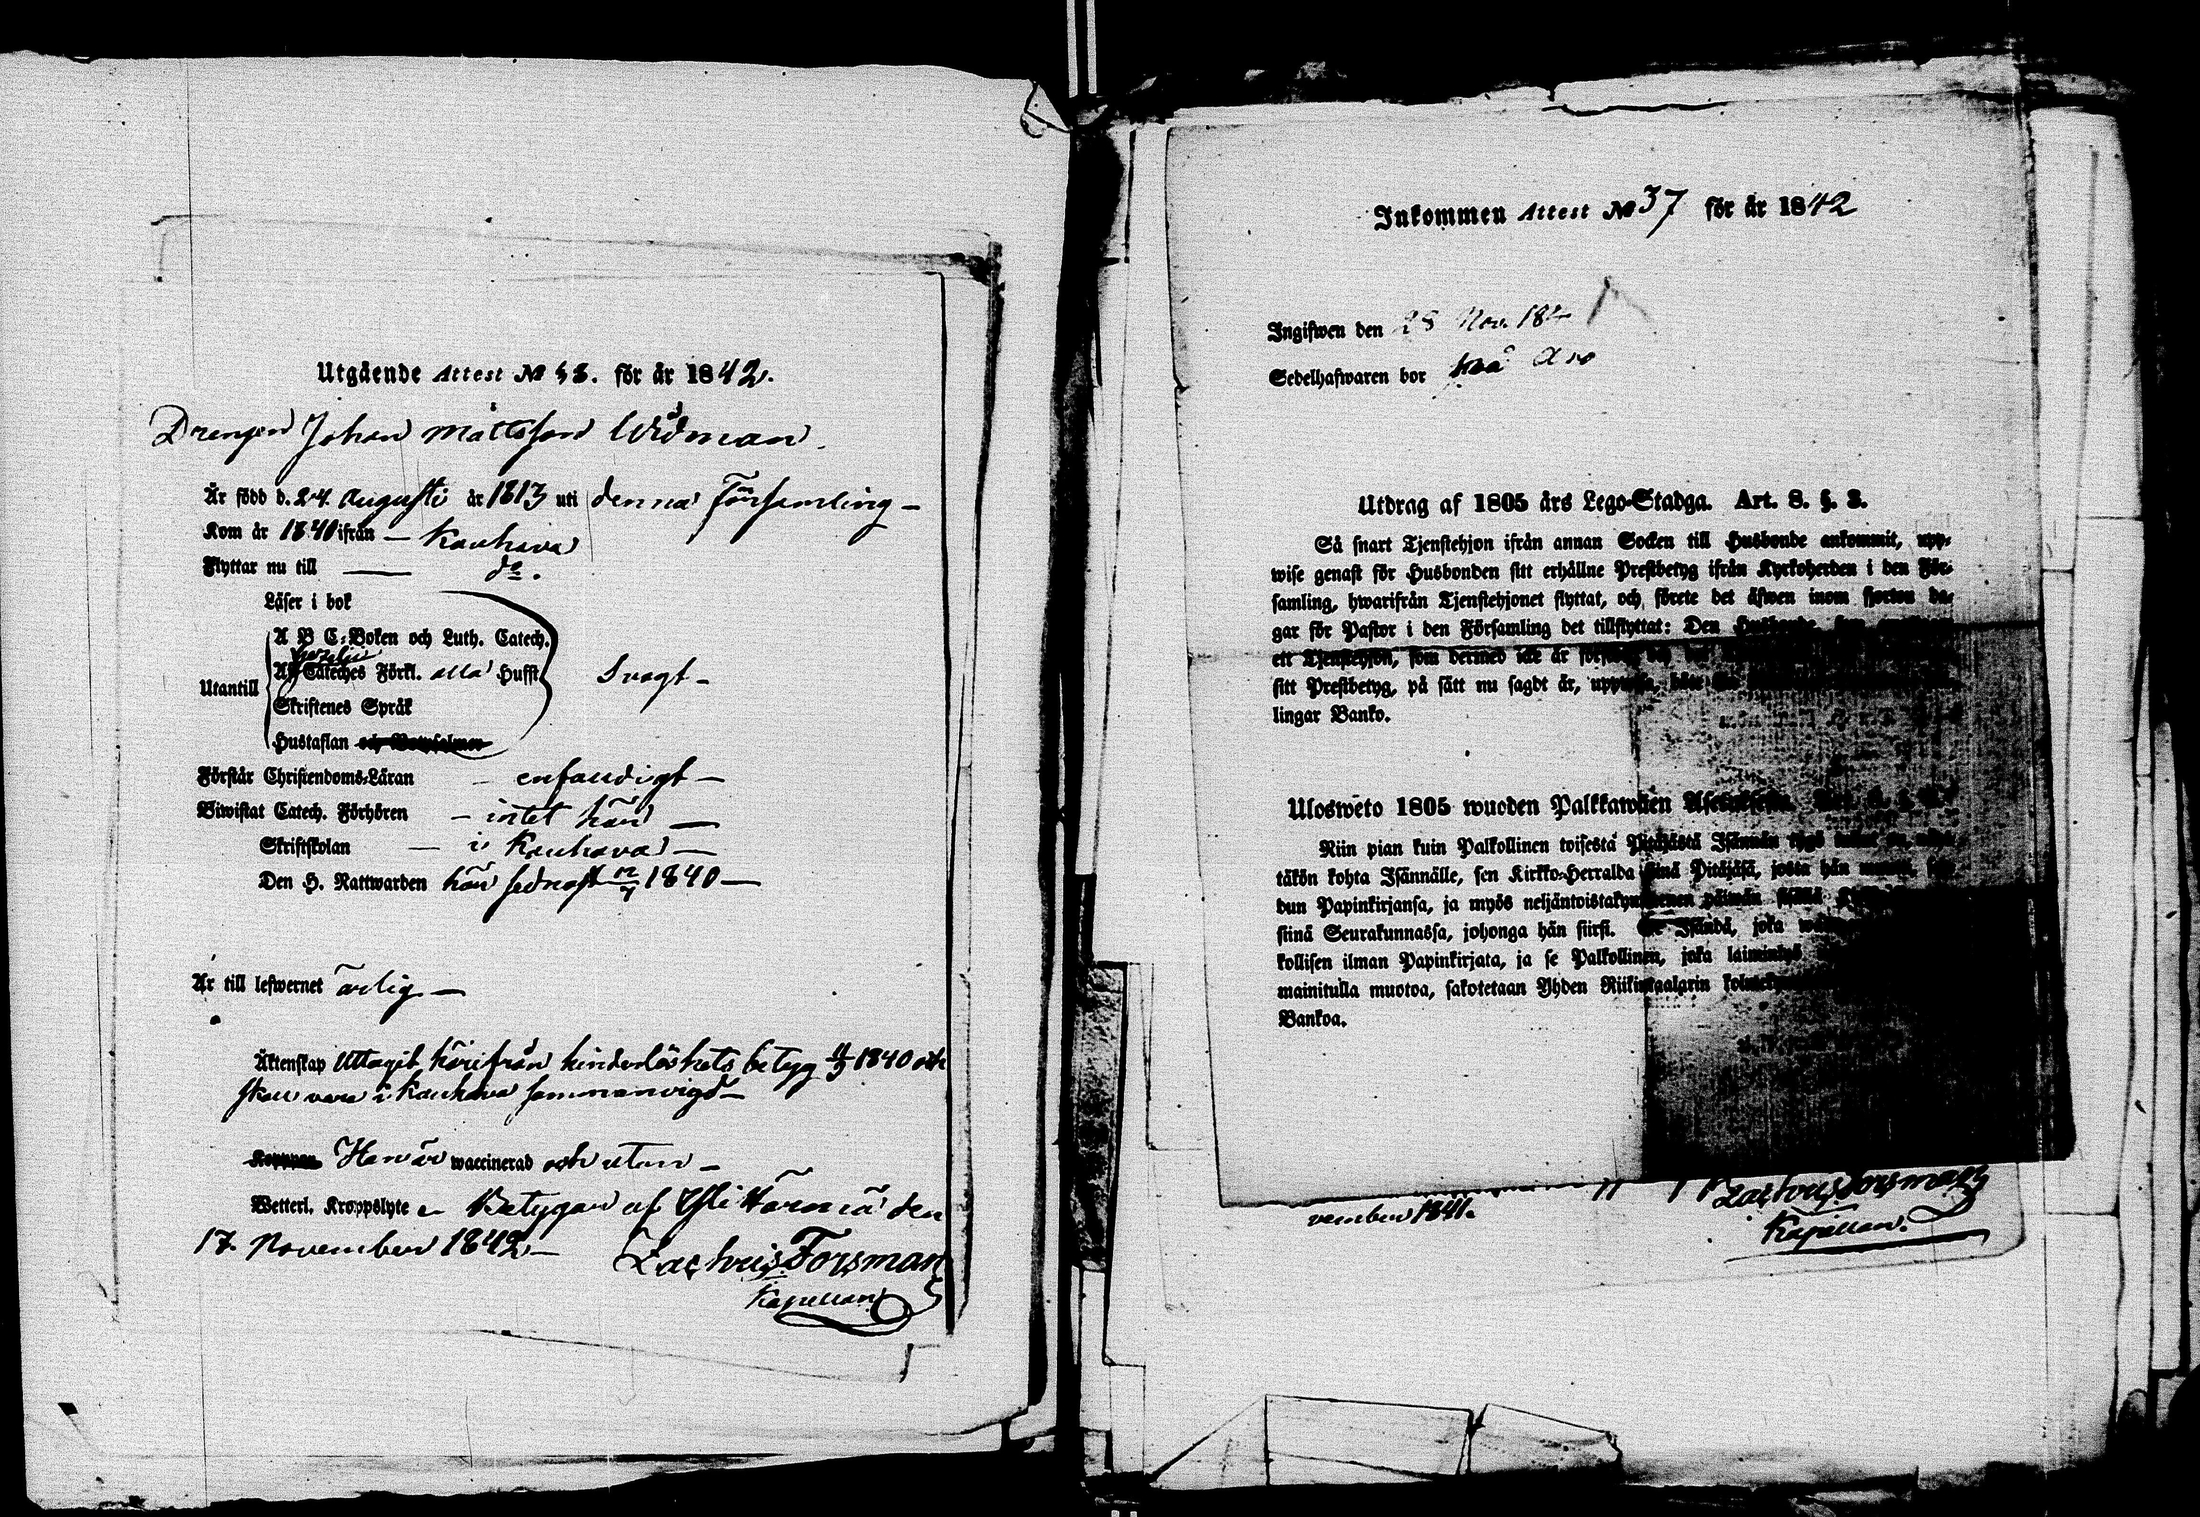 Utgående Attest № 58. för år 1842.
Drengen Johan Mattsson Widman.
Är född d. 24 Augusti år 1813 uti denna Församling –
Kom år 1840 ifrån – Kauhava
Flyttar nu till — do.
Läser i bok
A B C-Boken och Luth. Catech.
Utantill Cateches Förkl. alla Hufft. Svagt –
Skriftenes Språk
Hustaflan och
Förstår Christendoms-Läran – enfaldigt –
Biwistat Catech. Förhören – intet här –
Skriftskolan — i Kauhava –
Den H. Nattwarden här sednast 12/7 1840 –
Är till lefwernet ärlig. –
Äktenskap Uttagit härifrån hinderlöshets betyg 1840 och
skall vara i Kauhava sammanvigd –
Han är waccinerad och utan –
Wetterl. Kroppslyte – Betygar af Yli Härmä den
17 November 1842 –
Zachris Forsman
Kapellan
Inkommen Attest № 37 för år 1842
Ingifwen den 28 Nov. 184
Sedelhafwaren bor
Utdrag af 1805 års Lego-Stadga. Art. 8. §. 3.
Så snart Tjenstehjon ifrån annan Socken till Husbonde ankommit, upp-
wise genast för Husbonden sitt erhållne Prestbetyg ifrån Kyrkoherden i den För-
samling, hwarifrån Tjenstehjonet flyttat, och förete det äfwen inom fjorton da-
gar för Pastor i den Församling det tillflyttat: Den Husbonde
ett Tjenstehjon, som dermed icke är
sitt Prestbetyg, på sätt nu sagdt är,
lingar Banko.
Ulosweto 1805 wuoden Palkkawäen Asetuksesta.
Niin pian kuin Palkollinen toisesta Pitäjästä Isännän tygö
täkön kohta Isännälle, sen Kirkko-Herralda siinä Pitäjäsä, josta hän
dun Papinkirjansa, ja myös neljäntoistakymmenen päiwän sisällä
siinä Seurakunnassa, johonga hän siirsi. Se Isändä, joka
kollisen ilman Papinkirjata, ja se Palkollinen, joka laiminlyö
mainitulla muotoa, sakotetaan Yhden Riikintaalarin
Bankoa.
vember 1841.
Zachris Forsman
Kapellan.